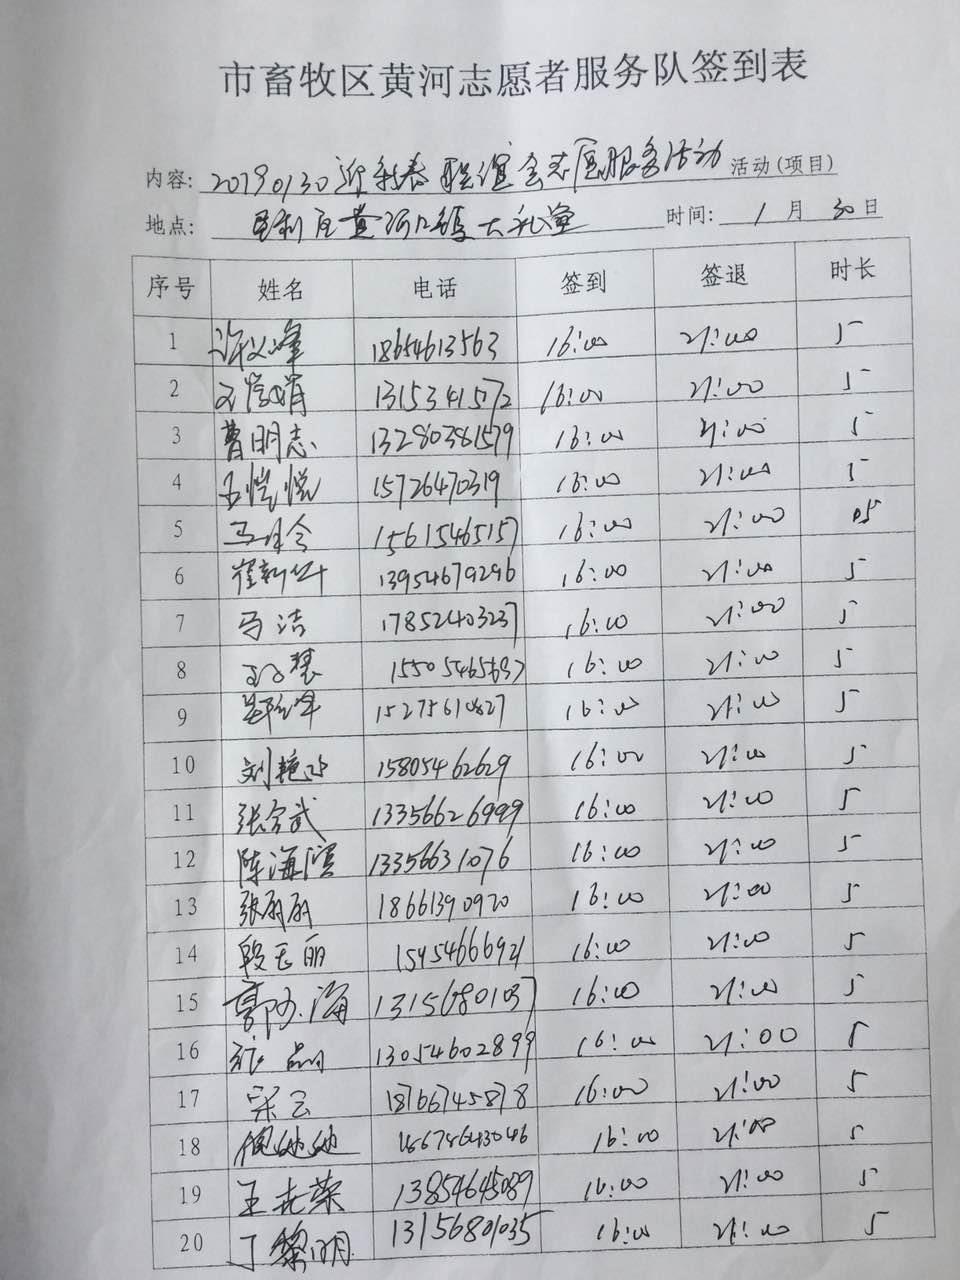 市畜牧区黄河志愿者服务队签到表
内容: 20190130迎新春联谊会志愿服务活动 活动(项目)
地点: 垦利区黄河口镇大礼堂 时间: 1 月 30 日
序号 姓名 电话 签到 签退 时长
1 许义峰 18654613563 16:00 21:00 5
2 13153341572 16:00 21:00 5
3 曹明志 13280381579 16:00 21:00 5
4 王悦悦 15726470319 16:00 21:00 5
5 15615465157 16:00 21:00 5
6 崔新红 13954679296 16:00 21:00 5
7 马洁 17852403237 16:00 21:00 5
8 16:00 21:00 5
9 15275610827 16:00 21:00 5
10 15805462629 16:00 21:00 5
11 张学武 13356626999 16:00 21:00 5
12 陈海滨 13356631076 16:00 21:00 5
13 18661390920 16:00 21:00 5
14 段玉丽 15454666921 16:00 21:00 5
15 13156801037 16:00 21:00 5
16 13054602899 16:00 21:00 5
17 宋云 18766745878 16:00 21:00 5
18 16:00 21:00 5
19 13854645089 16:00 21:00 5
20 丁黎明 13156801035 16:00 21:00 5